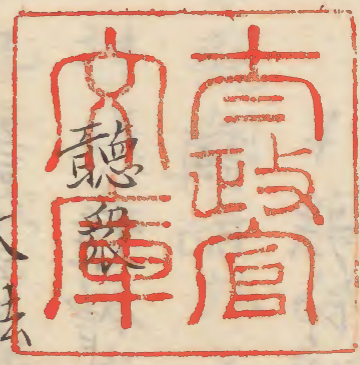 太政官
文庫
聽衆